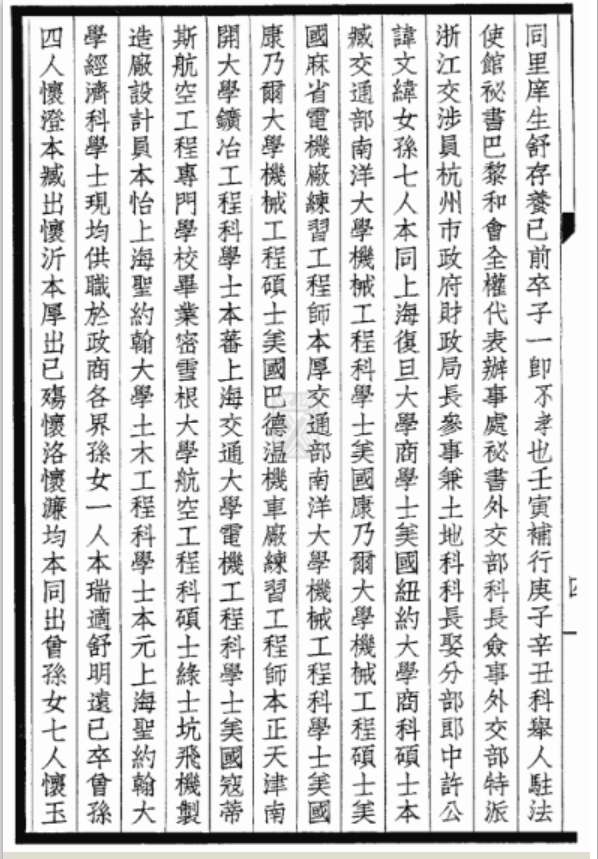 同里庠生舒存養已前卒子一即不孝也壬寅補行庚子辛丑科舉人駐法
使館祕書巴黎和會全權代表辦事處祕書外交部科長僉事外交部特派
浙江交涉員杭州市政府財政局長參事兼土地科科長娶分部郎中許公
諱文緯女孫七人本同上海復旦大學商學士美國紐約大學商科碩士本
臧交通部南洋大學機械工程科學士美國康乃爾大學機械工程碩士美
國麻省電機廠練習工程師本厚交通部南洋大學機械工程科學士美國
康乃爾大學機械工程碩士美國巴德溫機車廠練習工程師本正天津南
開大學鑛冶工程科學士本蕃上海交通大學電機工程科學士美國寇蒂
斯航空工程專門學校畢業密雪根大學航空工程科碩士綠士坑飛機製
造廠設計員本怡上海聖約翰大學土木工程科學士本元上海聖約翰大
學經濟科學士現均供職於政商各界孫女一人本瑞適舒明遠已卒曾孫
四人懷澄本臧出懷沂本厚出已殤懷洛懷濂均本同出曾孫女七人懷玉
四